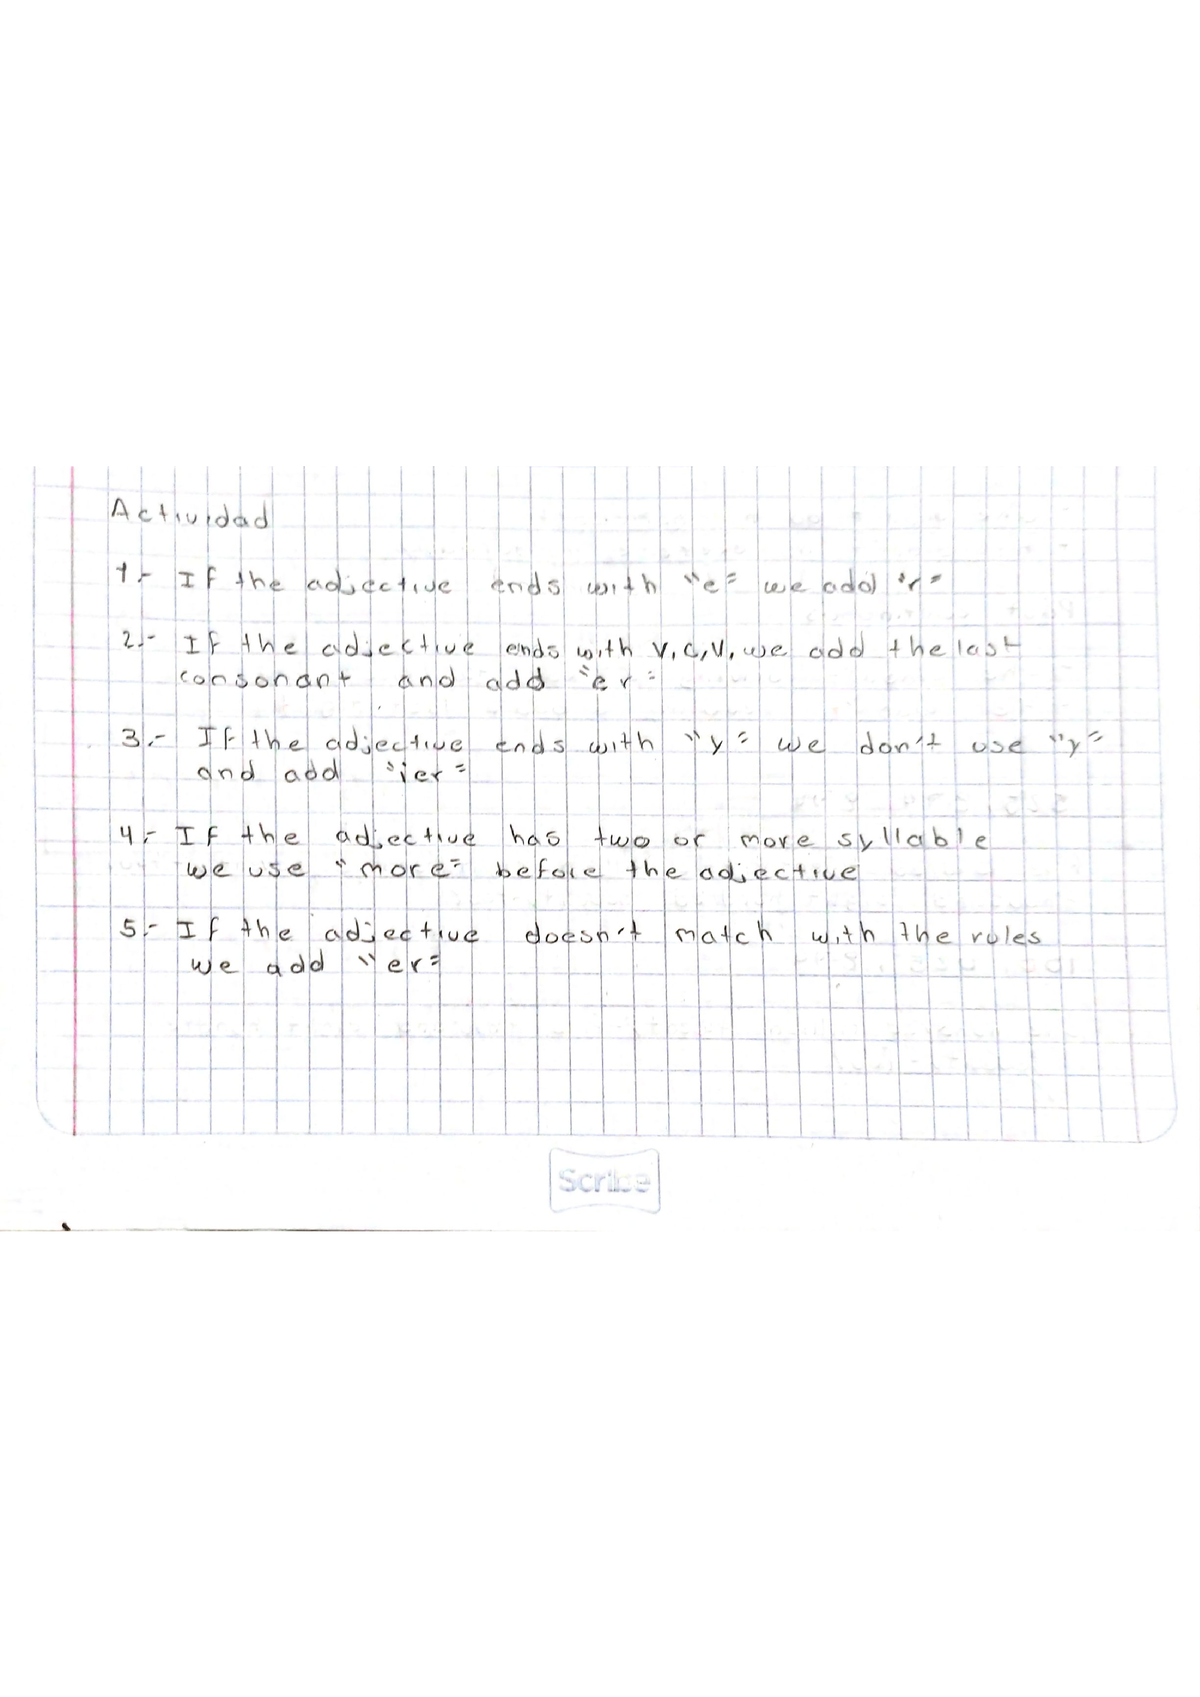 Actividad
1.- If the adjective ends with "e" we add "r"
2.- If the adjective ends with V, C, V, we add the last
consonant and add "er"
3.- If the adjective ends with "y" we don't use "y"
and add "ier"
4.- If the adjective has two or more syllable
we use "more" before the adjective
5.- If the adjective doesn't match with the rules
we add "er"
Scribe